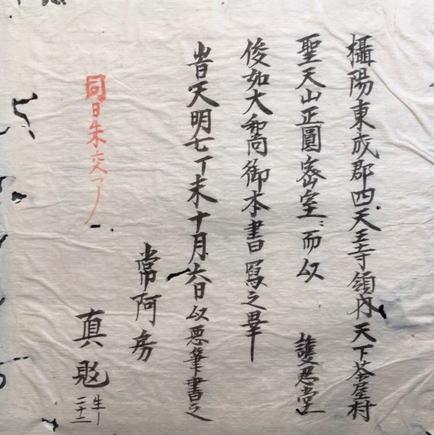 攝陽東成郡四天王寺領内天下茶屋村
聖天山正圓密室ニ而以
護忍堂
俊如大和尚御本書寫之畢
旹天明七丁未十月六日以悪筆書之
常阿房
真
年
二十二
同日朱交了